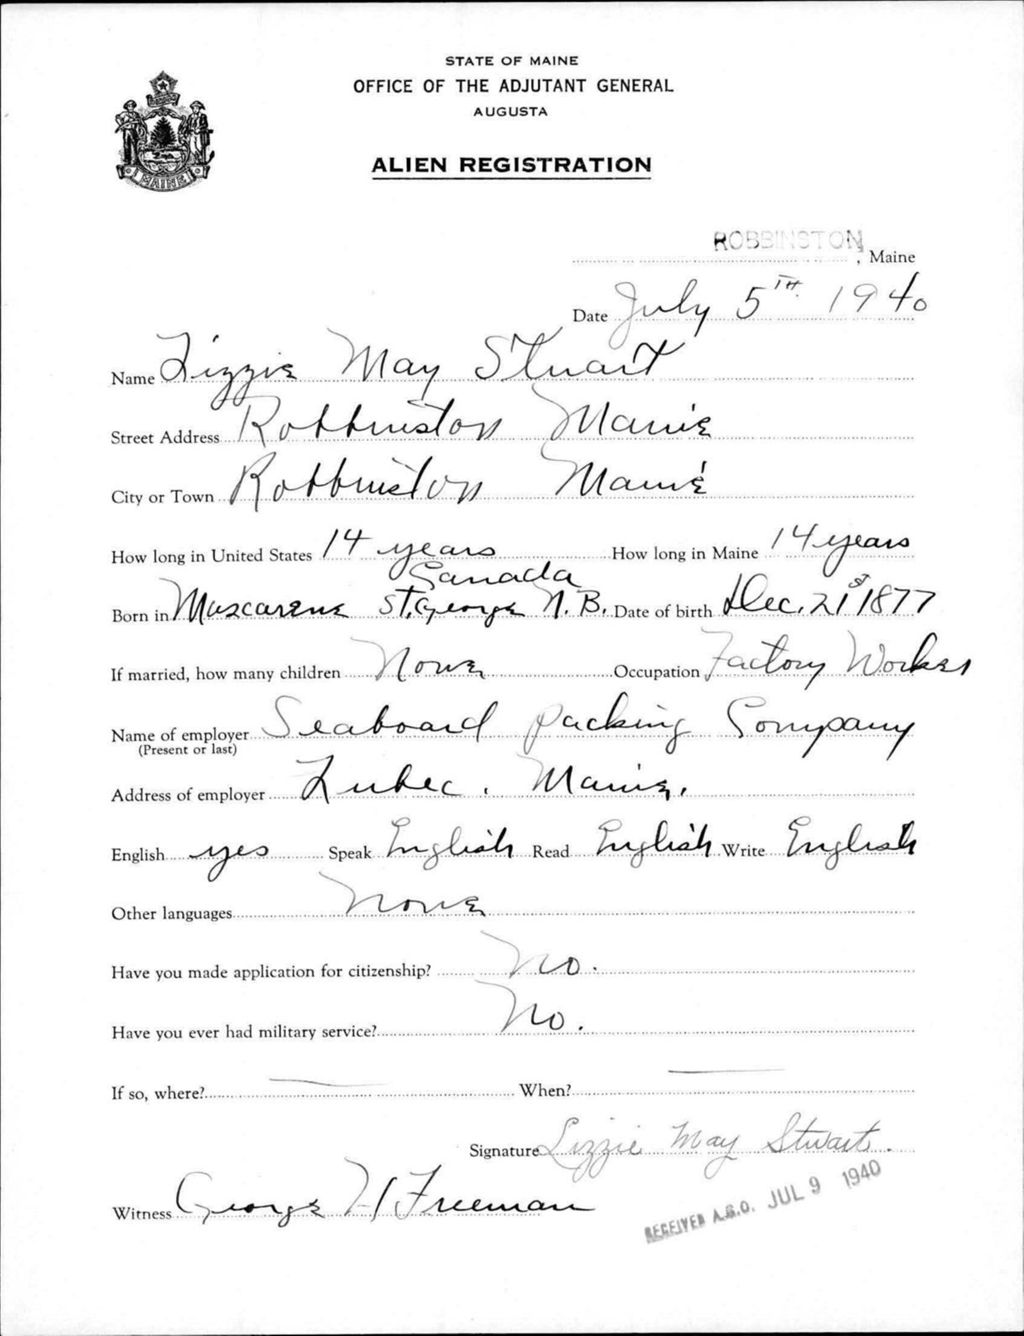 STATE OF MAINE
OFFICE OF THE ADJUTANT GENERAL
AUGUSTA
MAINE
ALIEN REGISTRATION
ROBBINSTON, Maine
Date July 5TH. 1940
Name Lizzie May Stuart
Street Address Robbinston Maine
City or Town Robbinston Maine
How long in United States 14 years How long in Maine 14 years
Canada
Born in Mascarene St. George N. B. Date of birth Dec. 21st 1877
If married, how many children None Occupation Factory Worker
Name of employer Seaboard Packing Company
(Present or last)
Address of employer Lubec. Maine.
English yes Speak English Read English Write English
Other languages None
Have you made application for citizenship? No.
Have you ever had military service? No.
If so, where? — When? —
Signature Lizzie May Stuart.
Witness George H Freeman
RECEIVED A.G.O. JUL 9 1940